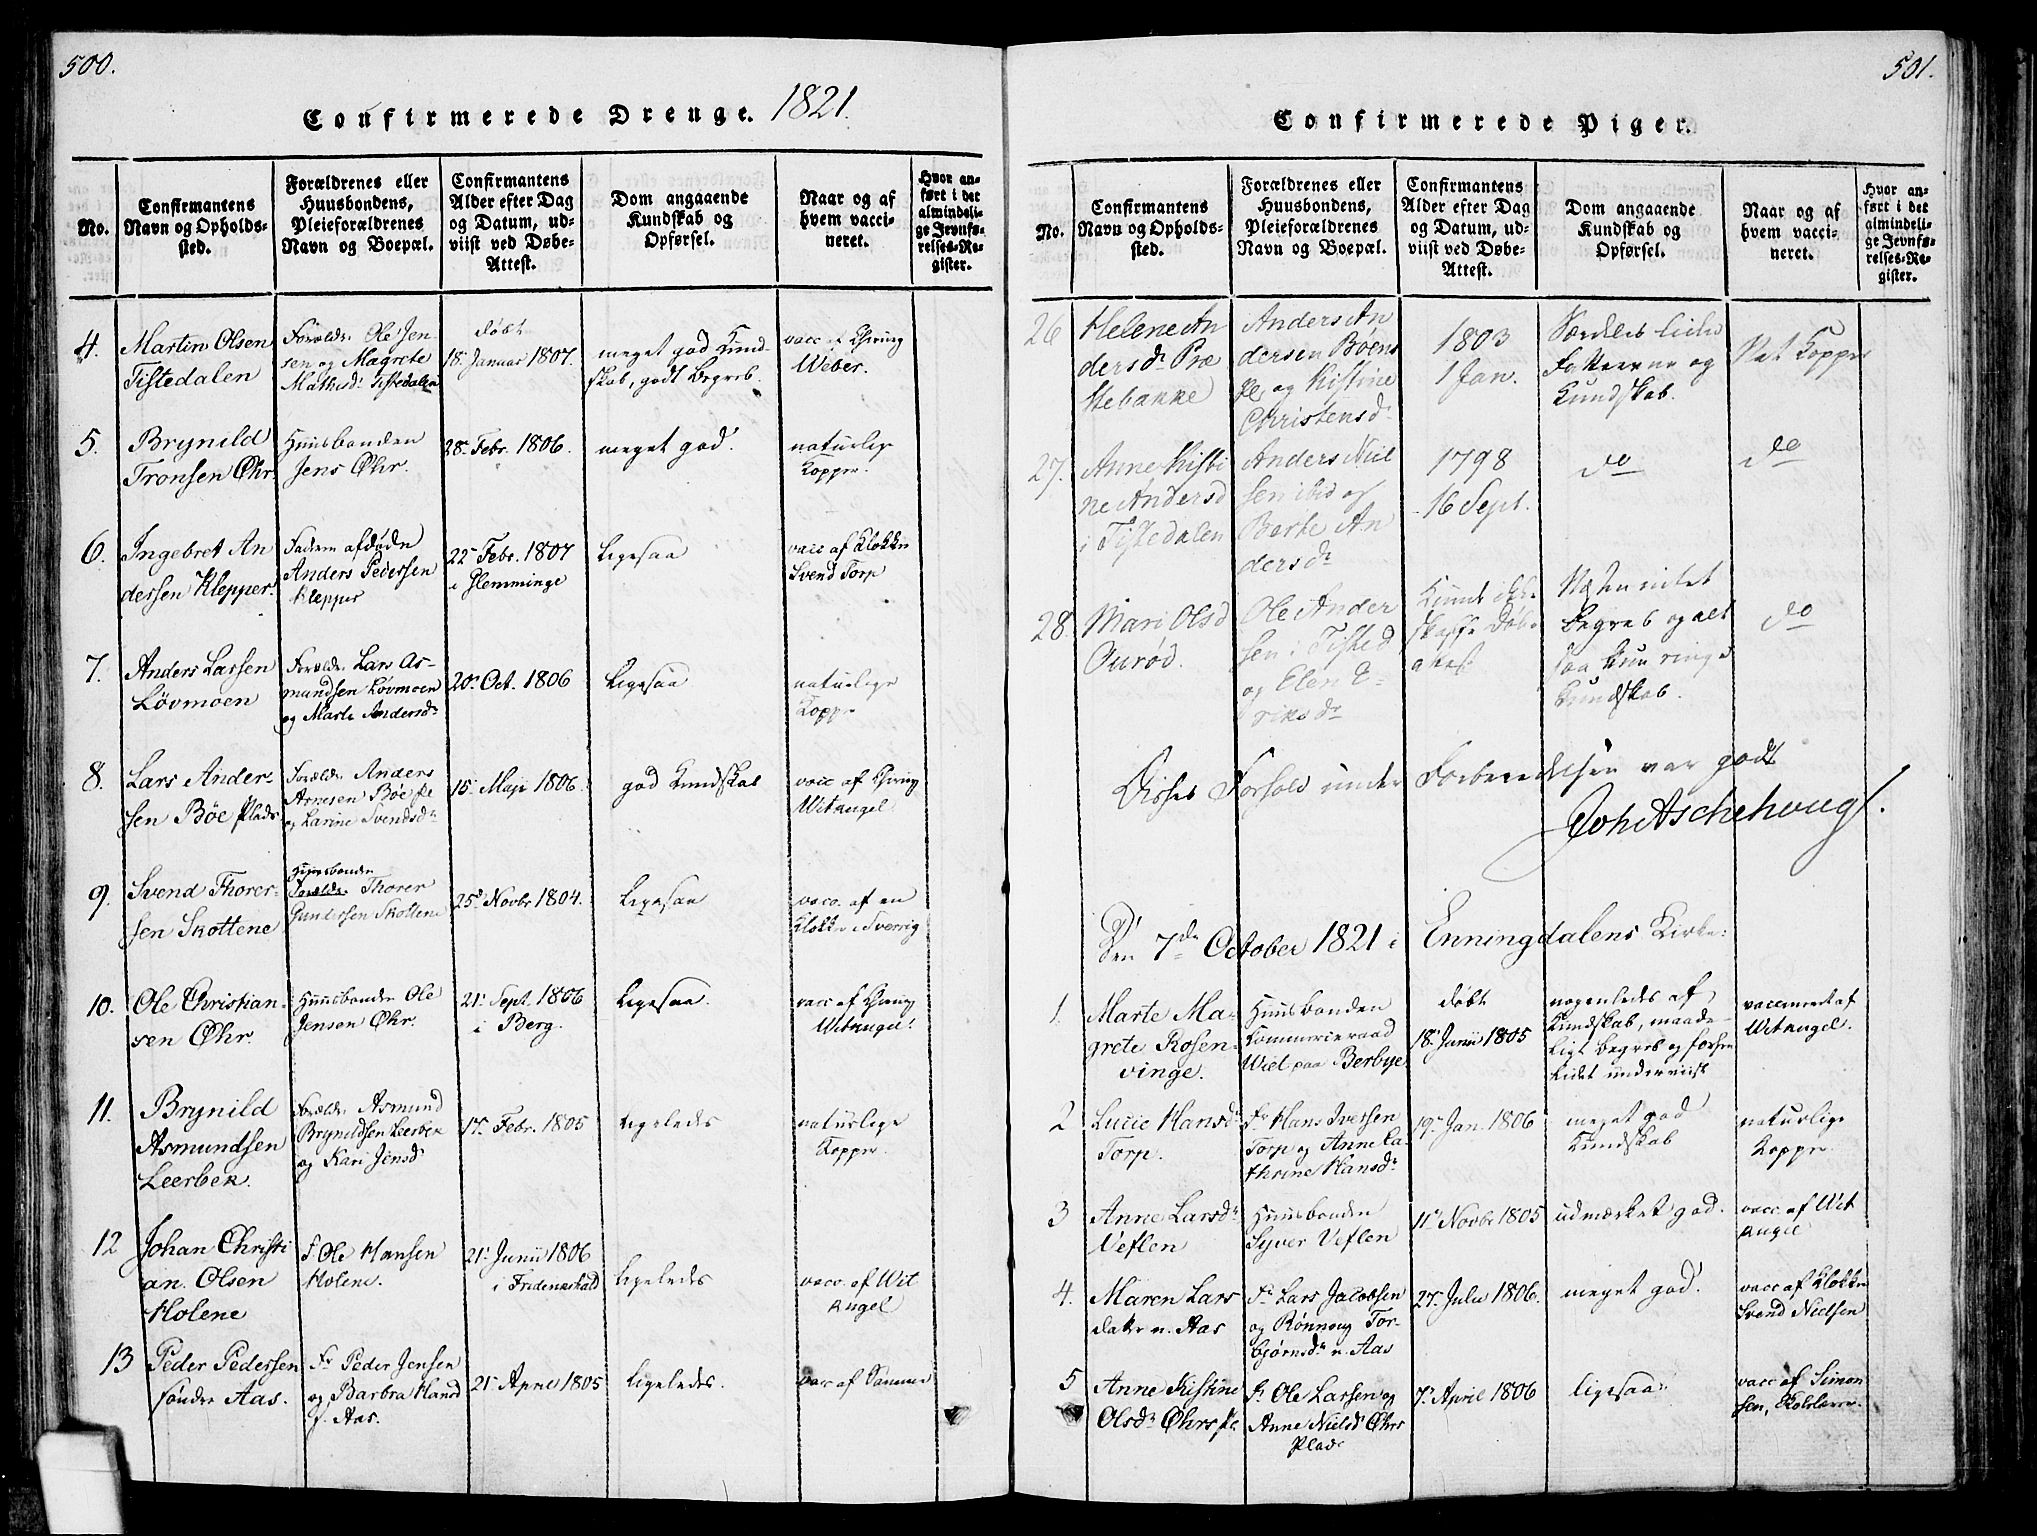 500.
Confirmerede Drenge. 1821.
No.
Confirmantens
Navn og Opholds-
sted.
Forældrenes eller
Huusbondens,
Pleieforældrenes
Navn og Boepæl.
Confirmantens
Alder efter Dag
og Datum, ud-
viist ved Døbe-
Attest.
Dom angaaende
Kundskab og
Opførsel.
Naar og af
hvem vacci-
neret.
Hvor an-
ført i det
almindeli-
ge Jevnfø-
relses-Re-
gister.
4.
Martin Olsen
Tistedalen
Forældr. Ole Jen-
sen og Magrete
Mathisd. Tistedalen
døbt
18. Januar 1807.
meget god Kund-
skab, godt Begreb.
vacc. af
Weber.
5.
Brynild
Tronsen Øhr.
Huusbonden
Jens Øhr.
28. Febr. 1806.
meget god.
naturlige
Kopper
6.
Ingebret An
dersen Klepper.
Faderen afdøde
Anders Pedersen
Klepper
22. Febr. 1807
i Glemminge
Ligesaa
vacc af Klokker
Svend Torp
7.
Anders Larsen
Løvmoen
Forældr. Lars As-
mundsen Løvmoen
og Marte Andersdr
20. Oct. 1806
Ligesaa
naturlige
Kopper
8.
Lars Ander-
sen Böe Plads
Forældr. Anders
Arnesen Böe Pl
og Larine Svendsdr
15. Maji 1806.
god Kundskab
vacc af
Witangel.
9.
Svend Thorer-
sen Skottene
Huusbonden
Forældr. Thorer
Gundersen Skottene
25. Novbr 1804.
Ligesaa
vacc. af en
Klokker i Sverrig
10.
Ole Christian-
sen Øhr.
Huusbonden Ole
Jensen Øhr.
21. Sept. 1806
i Berg.
Ligesaa.
vacc af
Witangel.
11.
Brynild
Asmundsen
Leerbek.
Forældr. Asmund
Brynildsen Leerbek
og Kari Jensd
17. Febr. 1805
Ligeledes
naturlige
Kopper.
12
Johan Christi
an. Olsen
Holene
F. Ole Hansen
Holene.
21. Junii 1806
i Fridericshald
Ligeledes
vacc. af Wit
angel
13
Peder Pedersen
sønder Aas.
Fr Peder Jensen
og Barbra Hansd
s. Aas.
21. April 1805
Ligeledes.
vacc af Samme
501.
Confirmerede Piger.
No.
Confirmantens
Navn og Opholds-
sted.
Forældrenes eller
Huusbondens,
Pleieforældrenes
Navn og Boepæl.
Confirmantens
Alder efter Dag
og Datum, ud-
viist ved Døbe-
Attest.
Dom angaaende
Kundskab og
Opførsel.
Naar og af
hvem vacci-
neret.
Hvor an-
ført i det
almindelig-
ge Jevnfø-
relses-Re-
gister.
26
Helene An
dersdr Præ
stebakke
Anders An
dersen Böens
Pl. og Kistine
Christensdr
1803
1 Jan.
Særdeles liden
Fatteevne og
Kundskab.
Nat Kopper
27.
Anne Kisti
ne Andersd
i Tistedalen
Anders Niel
sen ibid og
Berte An
dersdr
1798
16 Sept.
do
do
28
Mari Olsd
Ourød.
Ole Ander
sen i Tisted
og Elen E-
riksdr
Kunde ikke
skaffe Døbe
attest
Næsten intet
Begreb og alt
saa kun ringe
Kundskab.
do
Disses Forhold under Forberedelsen var godt
Joh Aschehoug.
Den 7de October 1821 i Enningdalens Kirke:
1.
Marte Ma-
grete Rosen-
vinge.
Huusbonden
Commerceraad
Wiel paa Berbye
døbt
18. Junii 1805
nogenledes af
Kundskab, maade-
ligt begreb og forhen
lidet underviist
vaccineret af
Witangel.
2
Lucie Hansdr
Torp.
Fr Hans Iversen
Torp og Anne Ca-
thrine Hansdr
19. Jan. 1806
meget god
Kundskab
naturlige
Kopper
3
Anne Larsdr
Veflen
Huusbonden
Syver Veflen
11. Novbr 1805
udmærket god.
vacc. af Wit
angel
4.
Maren Lars
datr n. Aas
Fr Lars Jacobsen
og Rönnoug Tor-
bjørnsdr n. Aas
27. Julii 1806.
meget god.
vacc af Klokker
Svend Nielsen
5
Anne Kistine
Olsdr Øhrs Pl.
Fr Ole Larsen og
Anne Nielsd Øhrs
Plads
7. April 1806
ligesaa
vacc af Simon
sen,